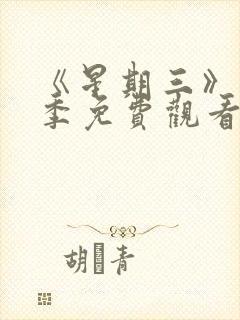 《星期三》
季免費觀看
胡青